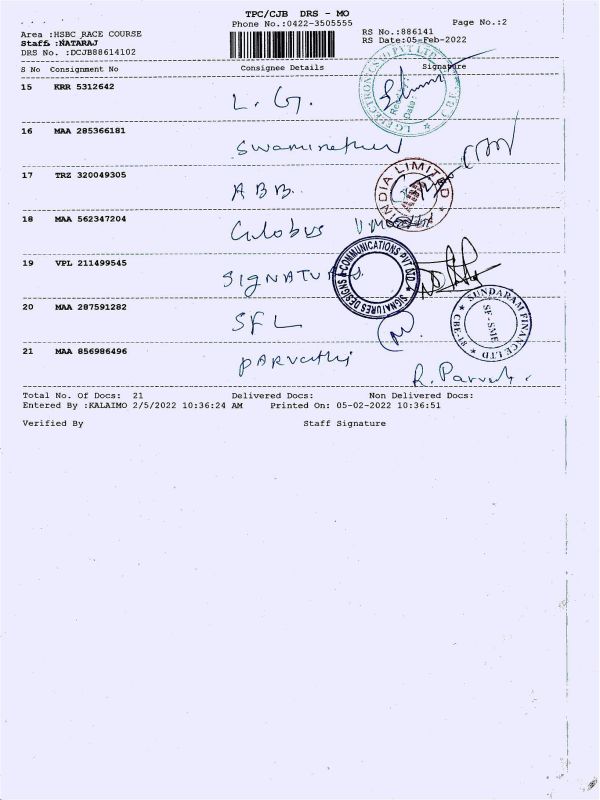 TPC/CJB DRS - MO
Phone No.:0422-3505555
Page No.:2
Area :HSBC RACE COURSE
RS No.:886141
Staff :NATARAJ
RS Date:05-Feb-2022
DRS No. :DCJB88614102
S No Consignment No Consignee Details Signature
15 KRR 5312642 L. G.
16 MAA 285366181 Swaminathan
17 TRZ 320049305 ABB
INDIA LIMITED
18 MAA 562347204 Globus
19 VPL 211499545 SIGNATURES
COMMUNICATIONS PVT LTD
SIGNATURES DESIGNS
20 MAA 287591282 SFL
SUNDARAM FINANCE LTD
SF-SME
21 MAA 856986496 PARVathi
R. Parvathi.
Total No. Of Docs: 21 Delivered Docs: Non Delivered Docs:
Entered By :KALAIMO 2/5/2022 10:36:24 AM Printed On: 05-02-2022 10:36:51
Verified By Staff Signature